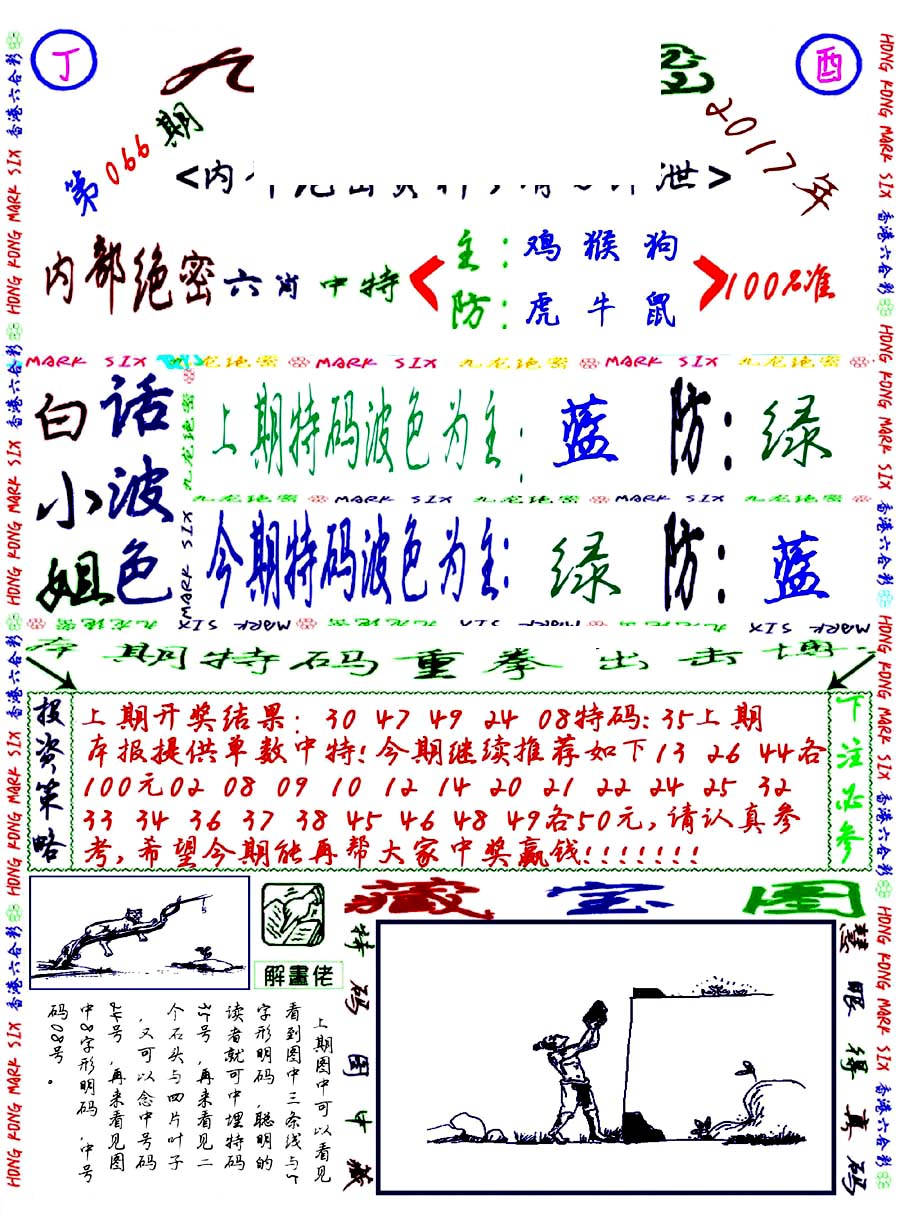 丁
酉
九
第066期
2017年
<内
泄>
内部绝密六肖中特
主:鸡猴狗
防:虎牛鼠
100%准
MARK SIX 九龙绝密 MARK SIX 九龙绝密 MARK SIX 九龙绝密
白话
小波
姐色
上期特码波色为主:蓝 防:绿
九龙绝密 MARK SIX 九龙绝密 MARK SIX 九龙绝密
今期特码波色为主:绿 防:蓝
九龙绝密 MARK SIX 九龙绝密 MARK SIX 九龙绝密 MARK SIX
九龙绝密 MARK SIX
期特码重拳出击博
投资策略
上期开奖结果: 30 47 49 24 08特码:35上期
本报提供单数中特!今期继续推荐如下13 26 44各
100元02 08 09 10 12 14 20 21 22 24 25 32
33 34 36 37 38 45 46 48 49各50元,请认真参
考,希望今期能再帮大家中奖赢钱!!!!!!!
下注必参
解畫佬
藏宝图
特码图中藏
慧眼得真码
上期图中可以看见
看到图中三条线与
字形明码,聪明的
读者就可中埋特码
号,再来看见二
个石头与四片叶子
,又可以念中号码
24号,再来看见图
中8字形明码,中号
码08号。
HONG KONG MARK SIX 香港六合彩 HONG KONG MARK SIX 香港六合彩 HONG KONG MARK SIX 香港六合彩 HONG KONG MARK SIX 香港六合彩
HONG KONG MARK SIX 香港六合彩 HONG KONG MARK SIX 香港六合彩 HONG KONG MARK SIX 香港六合彩 HONG KONG MARK SIX 香港六合彩